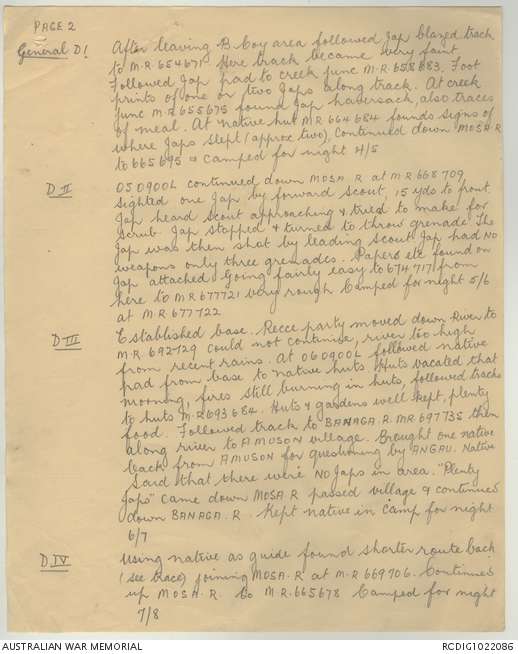 PAGE 2
General D! After leaving B. Coy area followed Jap blazed track
to M.R. 654671 Here track became very faint
Followed Jap pad to creek junc M.R. 658683. Foot
prints of one or two Japs along track. At creek
junc M.R. 655675 found Jap haversack, also traces
of meal. At native hut M.R 664684 founds signs of
where Japs slept (approx two) Continued down MOSA. R
to 665695 & camped for night 4/5
D II 050900L continued down MOSA R at M.R 668709
sighted one Jap by forward scout, 15 yds to front.
Jap heard scout approaching & tried to make for
scrub. Jap stopped & turned to throw grenade The
Jap was then shot by leading scout. Jap had NO
weapons only three grenades. Papers etc found on
Jap attached Going fairly easy to 674717 from
here to M.R 677721 very rough Camped for night 5/6
at M.R 677722
D III Established base. Recce party moved down River to
M.R. 692729 could not continue, river too high
from recent rains. At 060900L followed native
pad from base to native huts Huts vacated that
morning, fires still burning in huts, followed tracks
to huts M.R.693684. Huts & gardens well kept, plenty
food. Followed track to BANAGA. R. MR 697735 then
along river to AMUSON village. Brought one native
back from AMUSON for questioning by ANGAU. Native
said that there were NO Japs in area. "Plenty
Japs" came down MOSA R passed village & continued
down BANAGA. R. Kept native in camp for night
6/7
D IV Using native as guide found shorter route back
(see trace) joining MOSA. R at M.R 669706. Continued
up MOSA. R. to M.R. 665678 Camped for night
7/8
AUSTRALIAN WAR MEMORIAL
RCDIG1022086